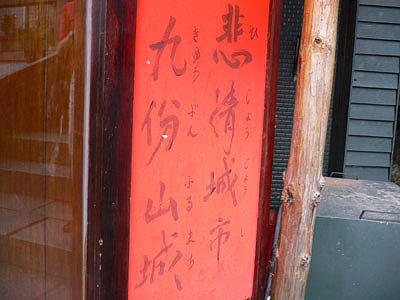 悲情城市
ひじょうじょうし
九份山城
きゅうぶんふるまち